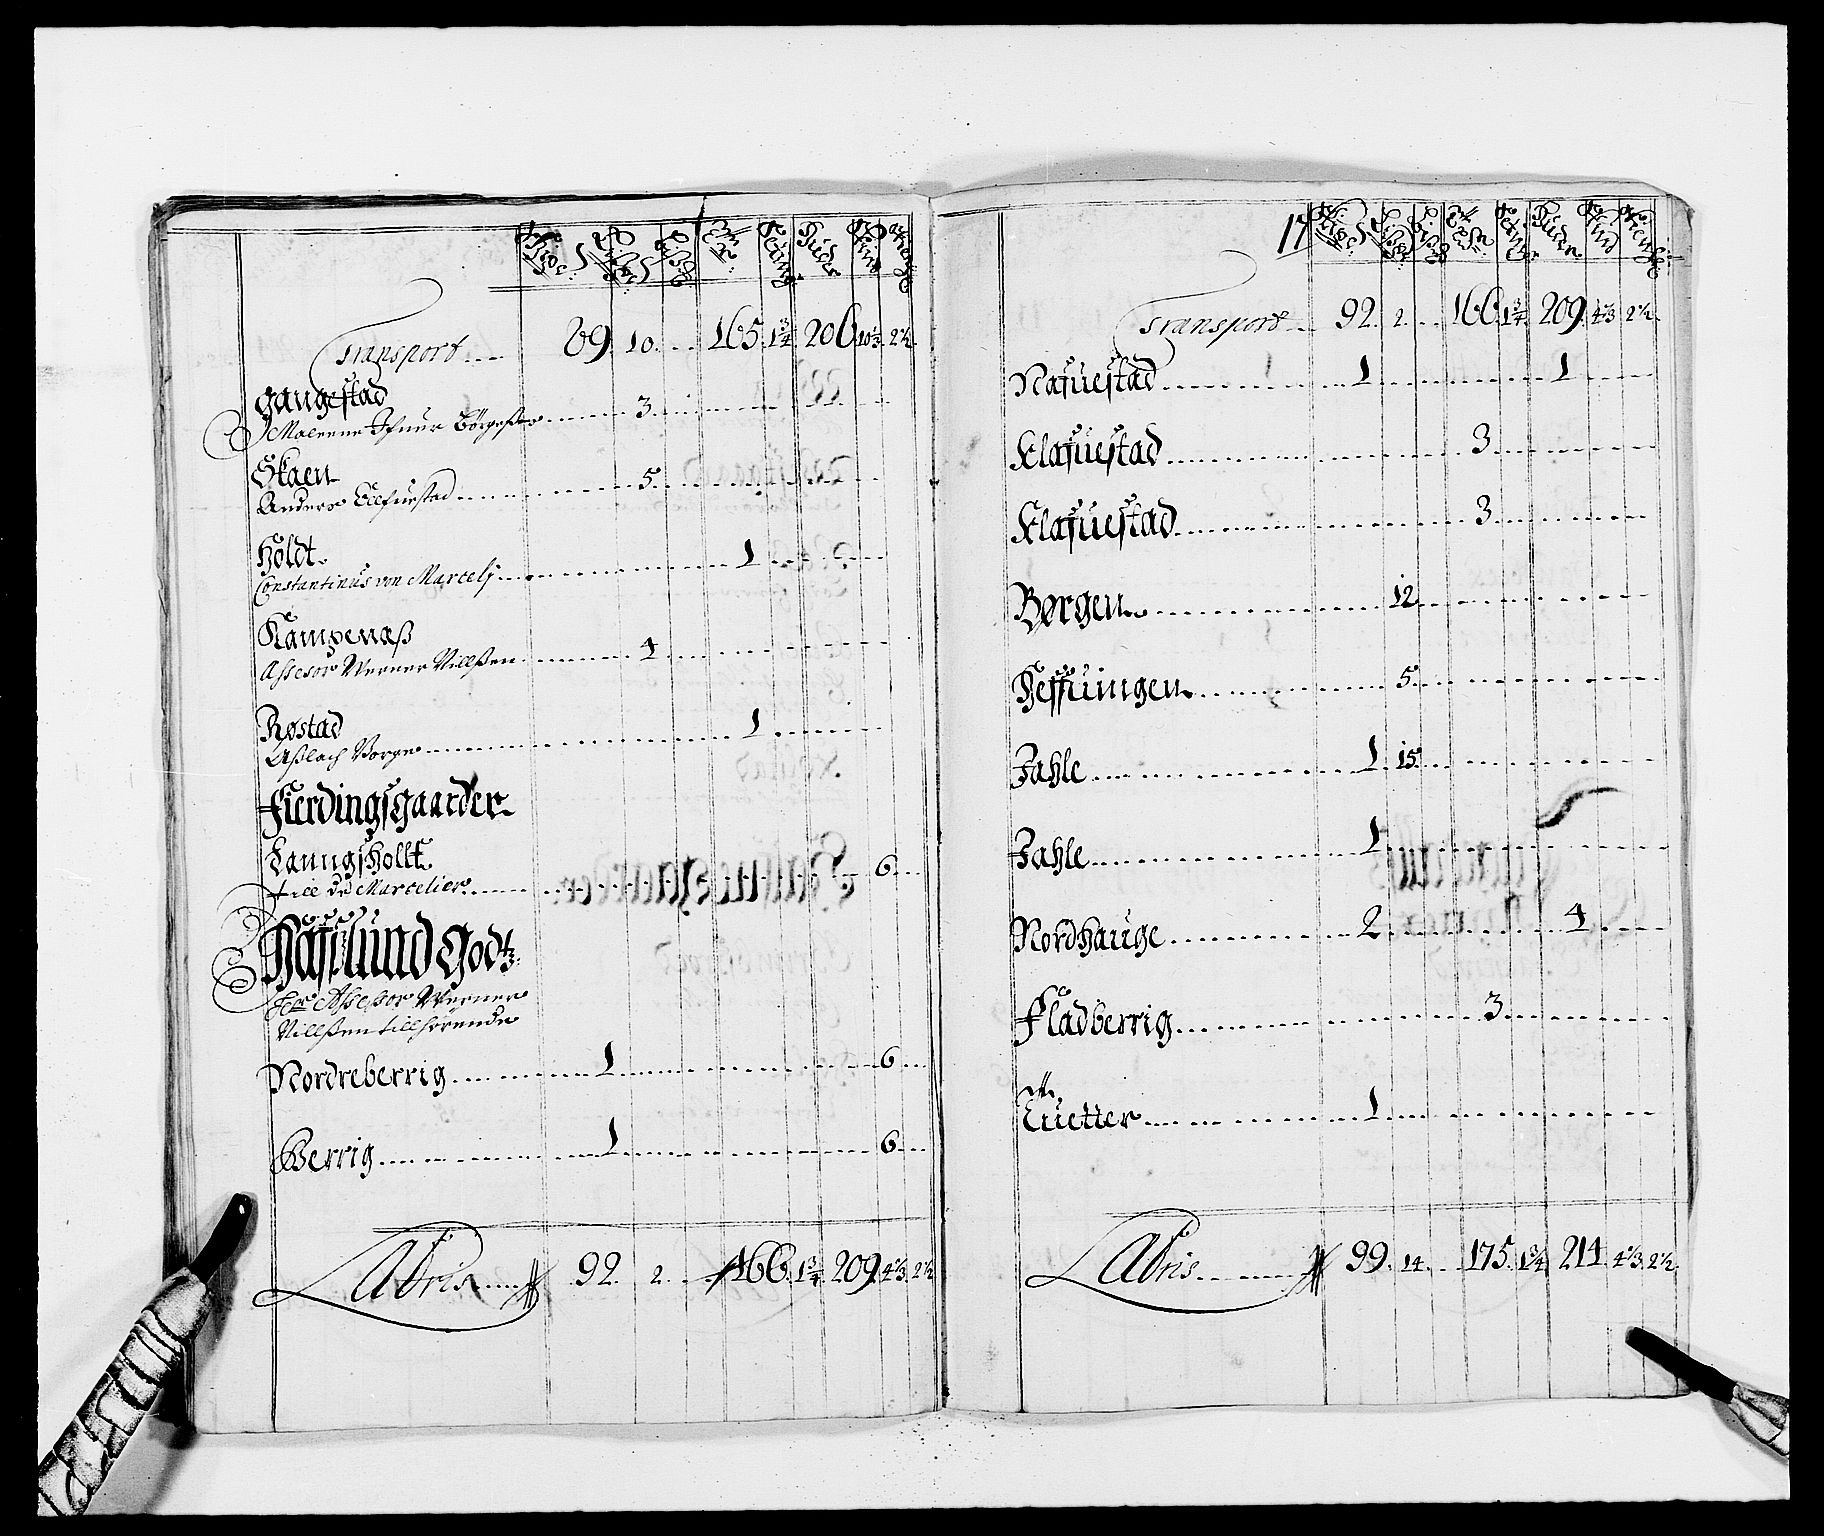 Transport 89. 10. 165. 1¾ 206 10⅓ 2½
Haugestad
Malerne Ifuur Børgeßen 3.
Skaen
Anders Ellfuestad 5.
Holdt
Constantinus von Marcelj 1
Kampenæß
Assesor Werner Nillßen 4
Røstad
Aßlach Borge 1
Fierdingsgaarder
Laungsholtt
till de Marcelier 6
Hafslund Godtz
Her Assessor Werner
Nillßen tillhørende
Nordreberrig 1 6
Berrig 1 6
Latris 92. 2. 166. 1¾ 209. 4⅓ 2½
17
Transport 92. 2. 166. 1¾ 209. 4⅓ 2½
Nafuestad 1 1
Klafuestad 3
Klafuestad 3
Børgen 12
Heffuingen 5
Jahle 1 15
Jahle 1
Nordhauge 2 4
Fladberrig 3
Tuetter 1
Latris 99. 14. 175. 1¾ 214 4⅓ 2½